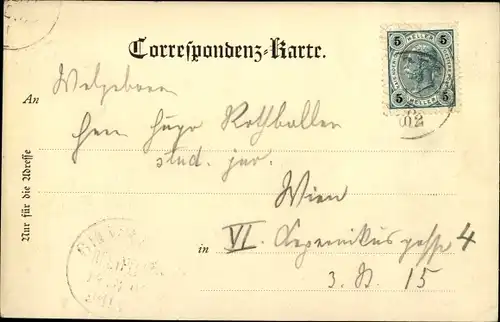 Correspondenz-Karte.
5 HELLER 5
5 HELLER 5
An
Wolgeboren
Herrn Hugo Rothballer
stud. jur.
Wien
in VI. Kopernikusgasse 4
3. St. 15
Nur für die Adresse